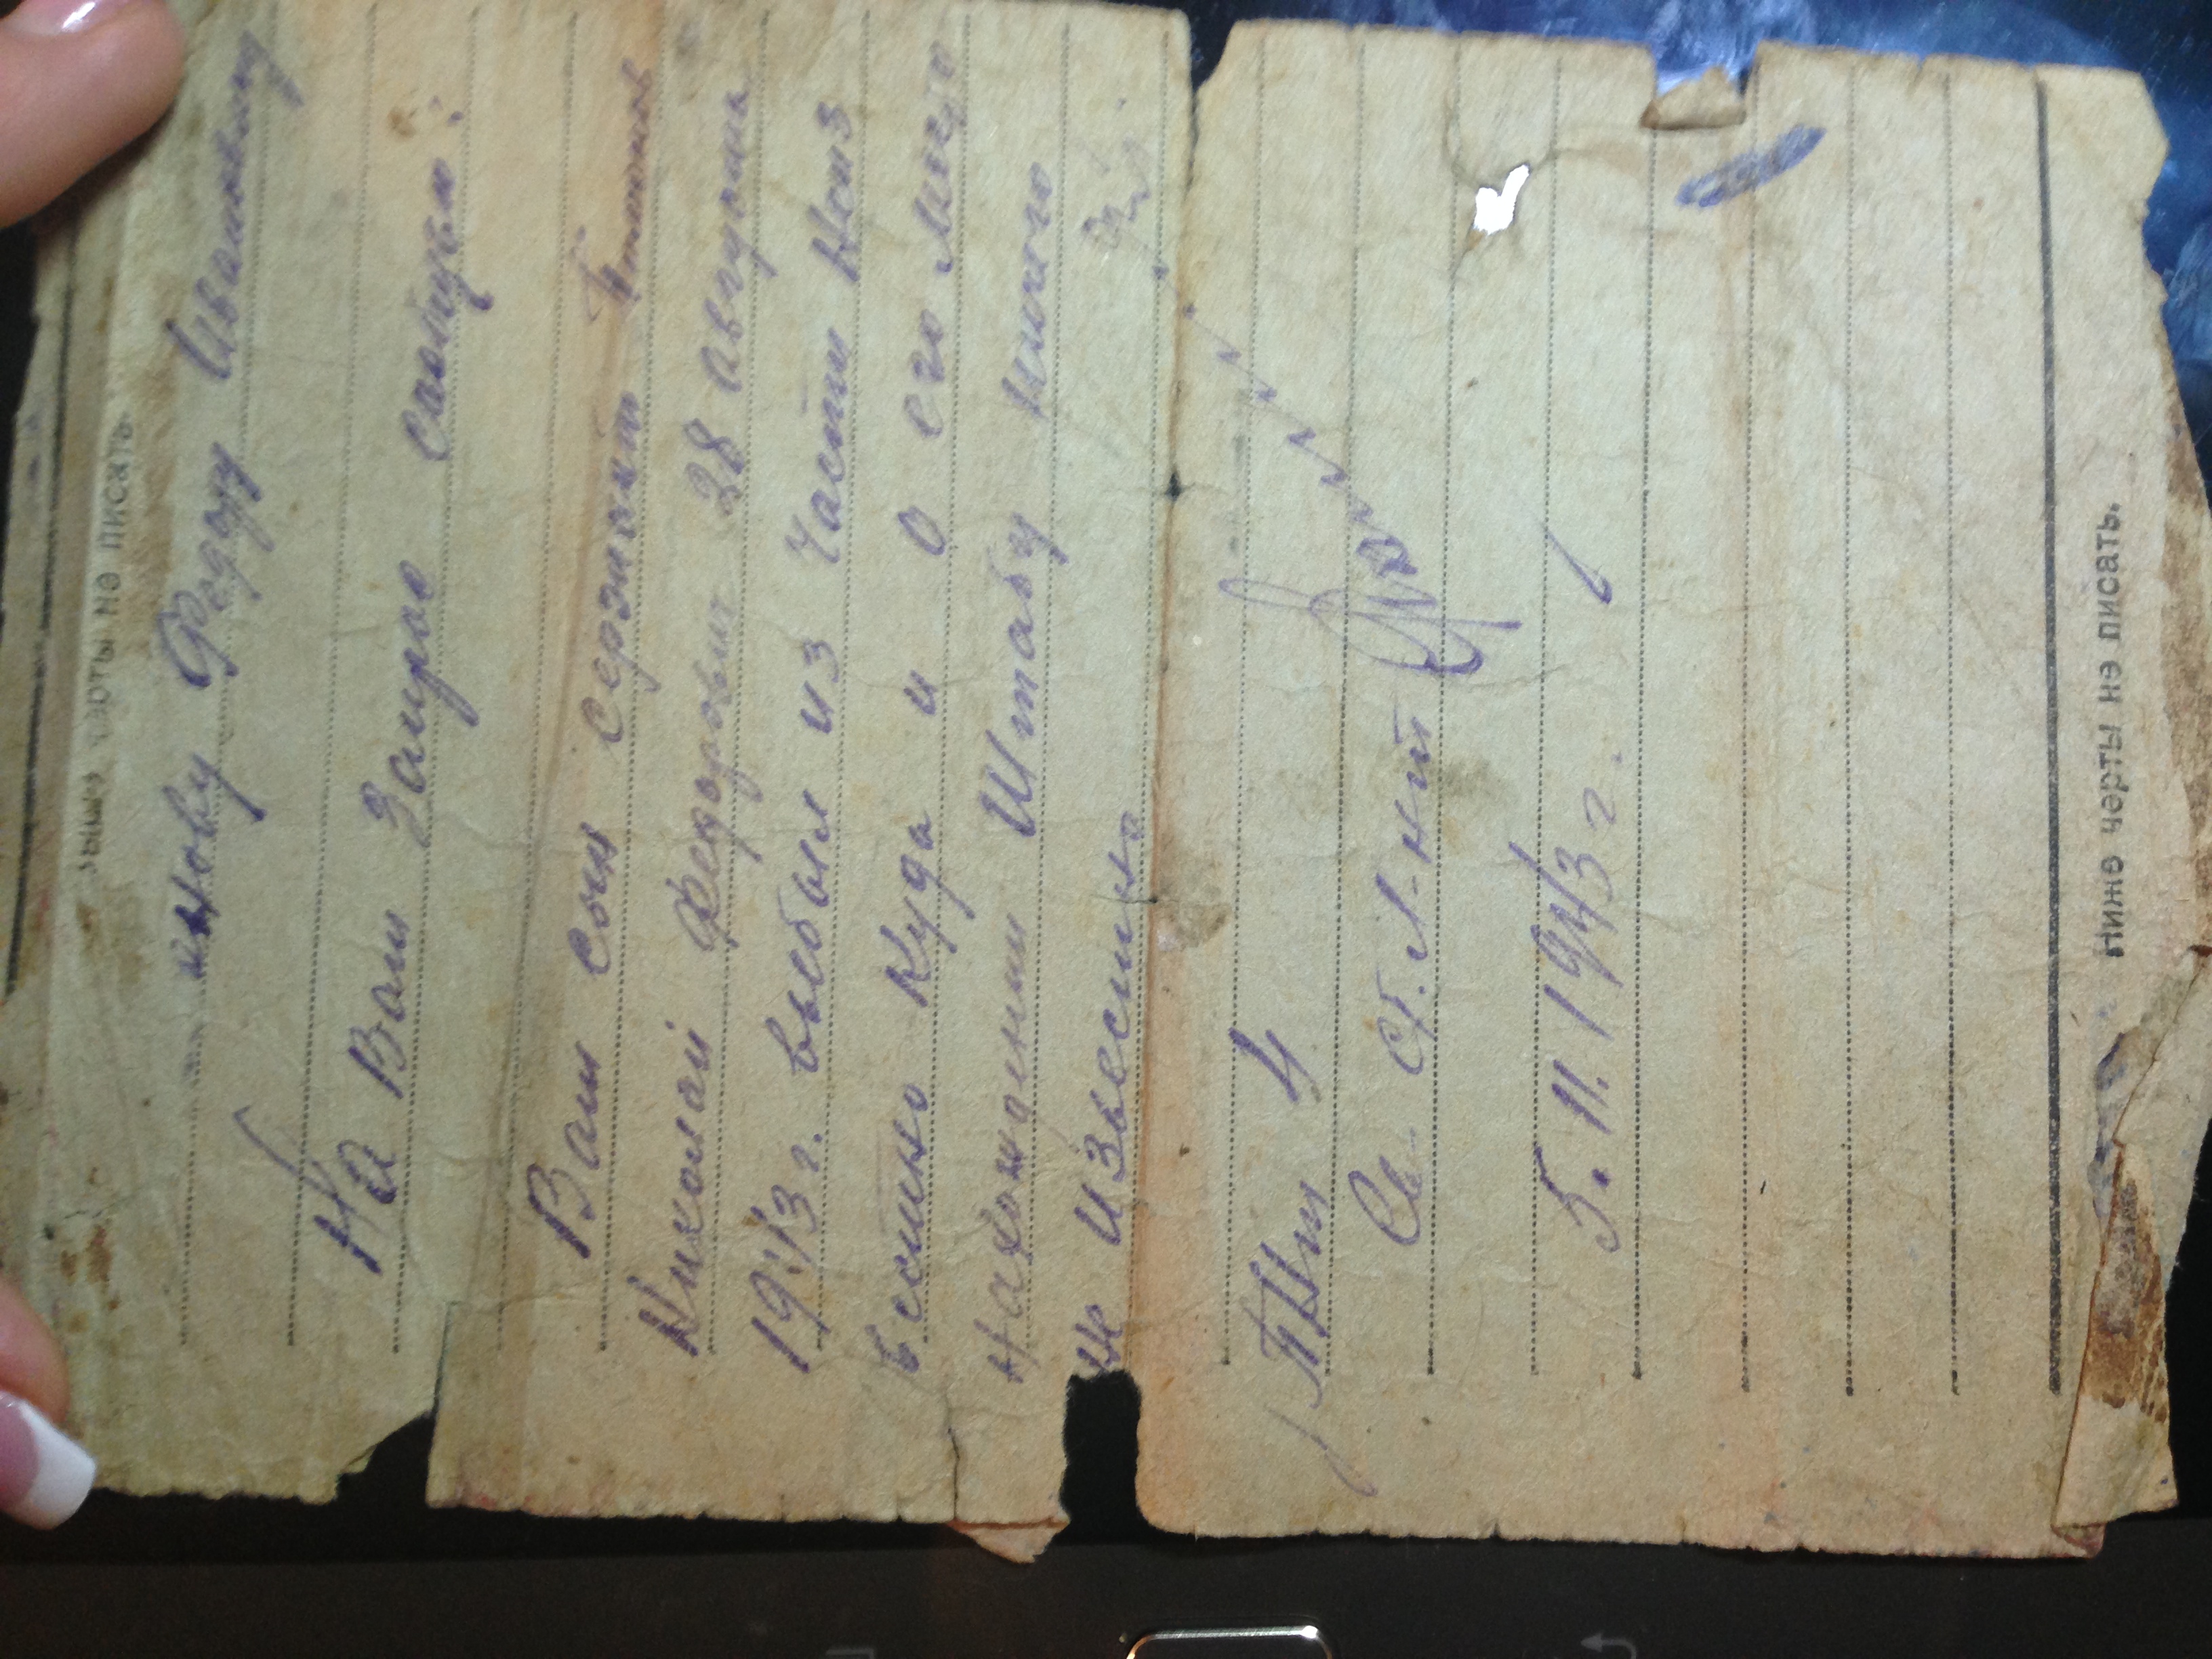 выше черты не писать
Федору Ивановичу
На Ваш Запрос сообщаю:
Ваш сын сержант
Николай Федорович 28 августа
1943 г. выбыл из Части Но из
вестно Куда и О его место
нахождении Штабу нашего
не Известно
ПНШ 4
Ст. Л-нт
5. 11. 1943 г.
Ниже черты не писать.